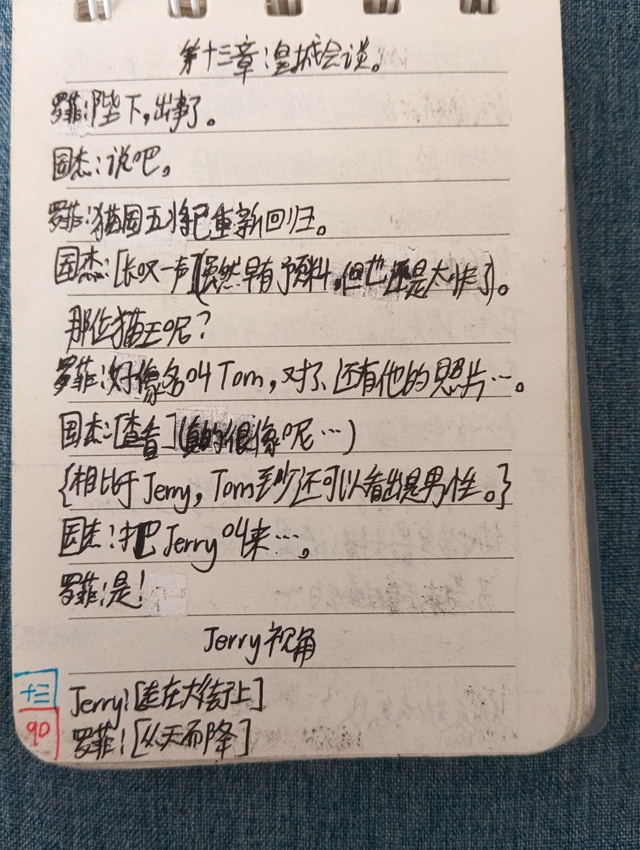 第十三章:皇城会谈。
罗菲:陛下,出事了。
国杰:说吧。
罗菲:猫国五将已重新回归。
国杰:[长叹一声](虽然早有预料,但也还是太快了)。
那位猫王呢?
罗菲:好像名叫Tom,对了,还有他的照片…。
国杰:[查看](真的很像呢…)
{相比于Jerry,Tom至少还可以看出是男性。}
国杰:把Jerry叫来…。
罗菲:是!
Jerry视角
十三
Jerry:[走在大街上]
90
罗菲:[从天而降]